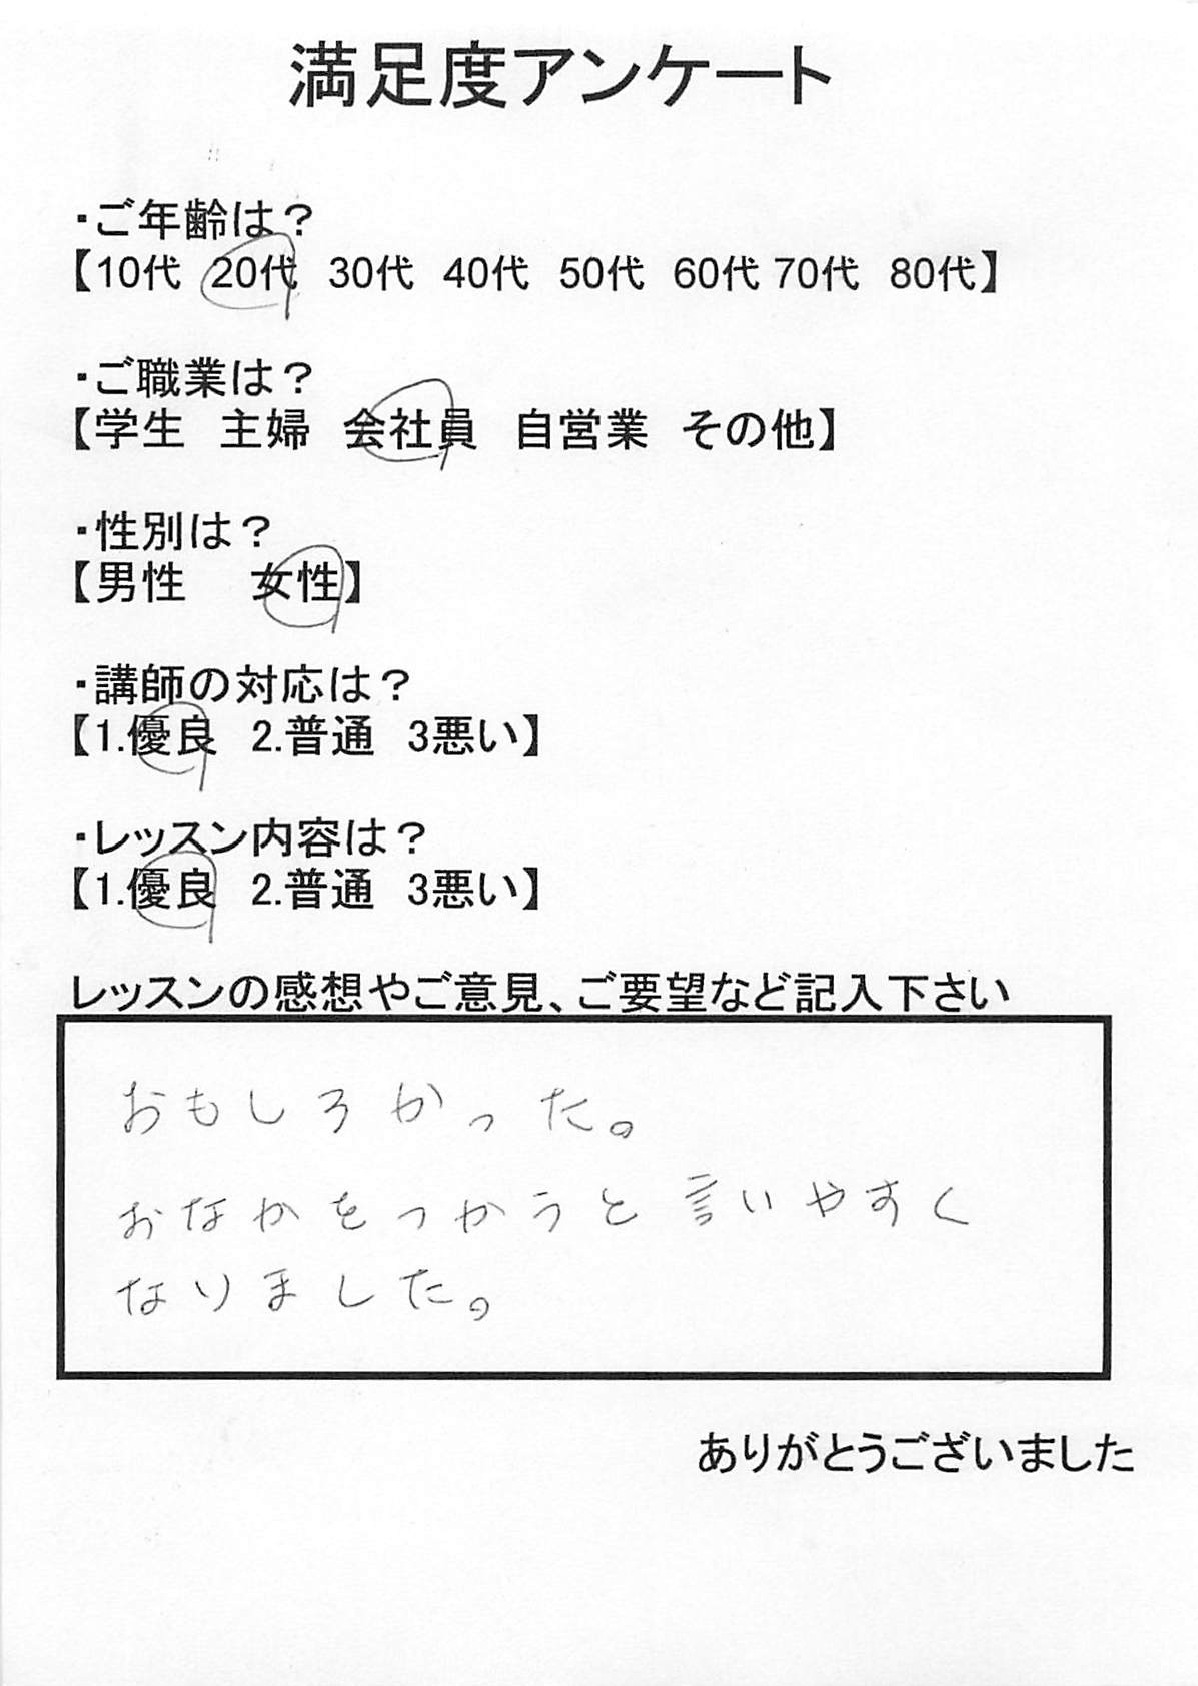 満足度アンケート
・ご年齢は？
【10代 20代 30代 40代 50代 60代 70代 80代】
・ご職業は？
【学生 主婦 会社員 自営業 その他】
・性別は？
【男性 女性】
・講師の対応は？
【1.優良 2.普通 3悪い】
・レッスン内容は？
【1.優良 2.普通 3悪い】
レッスンの感想やご意見、ご要望など記入下さい
おもしろかった。
おなかをつかうと言いやすく
なりました。
ありがとうございました